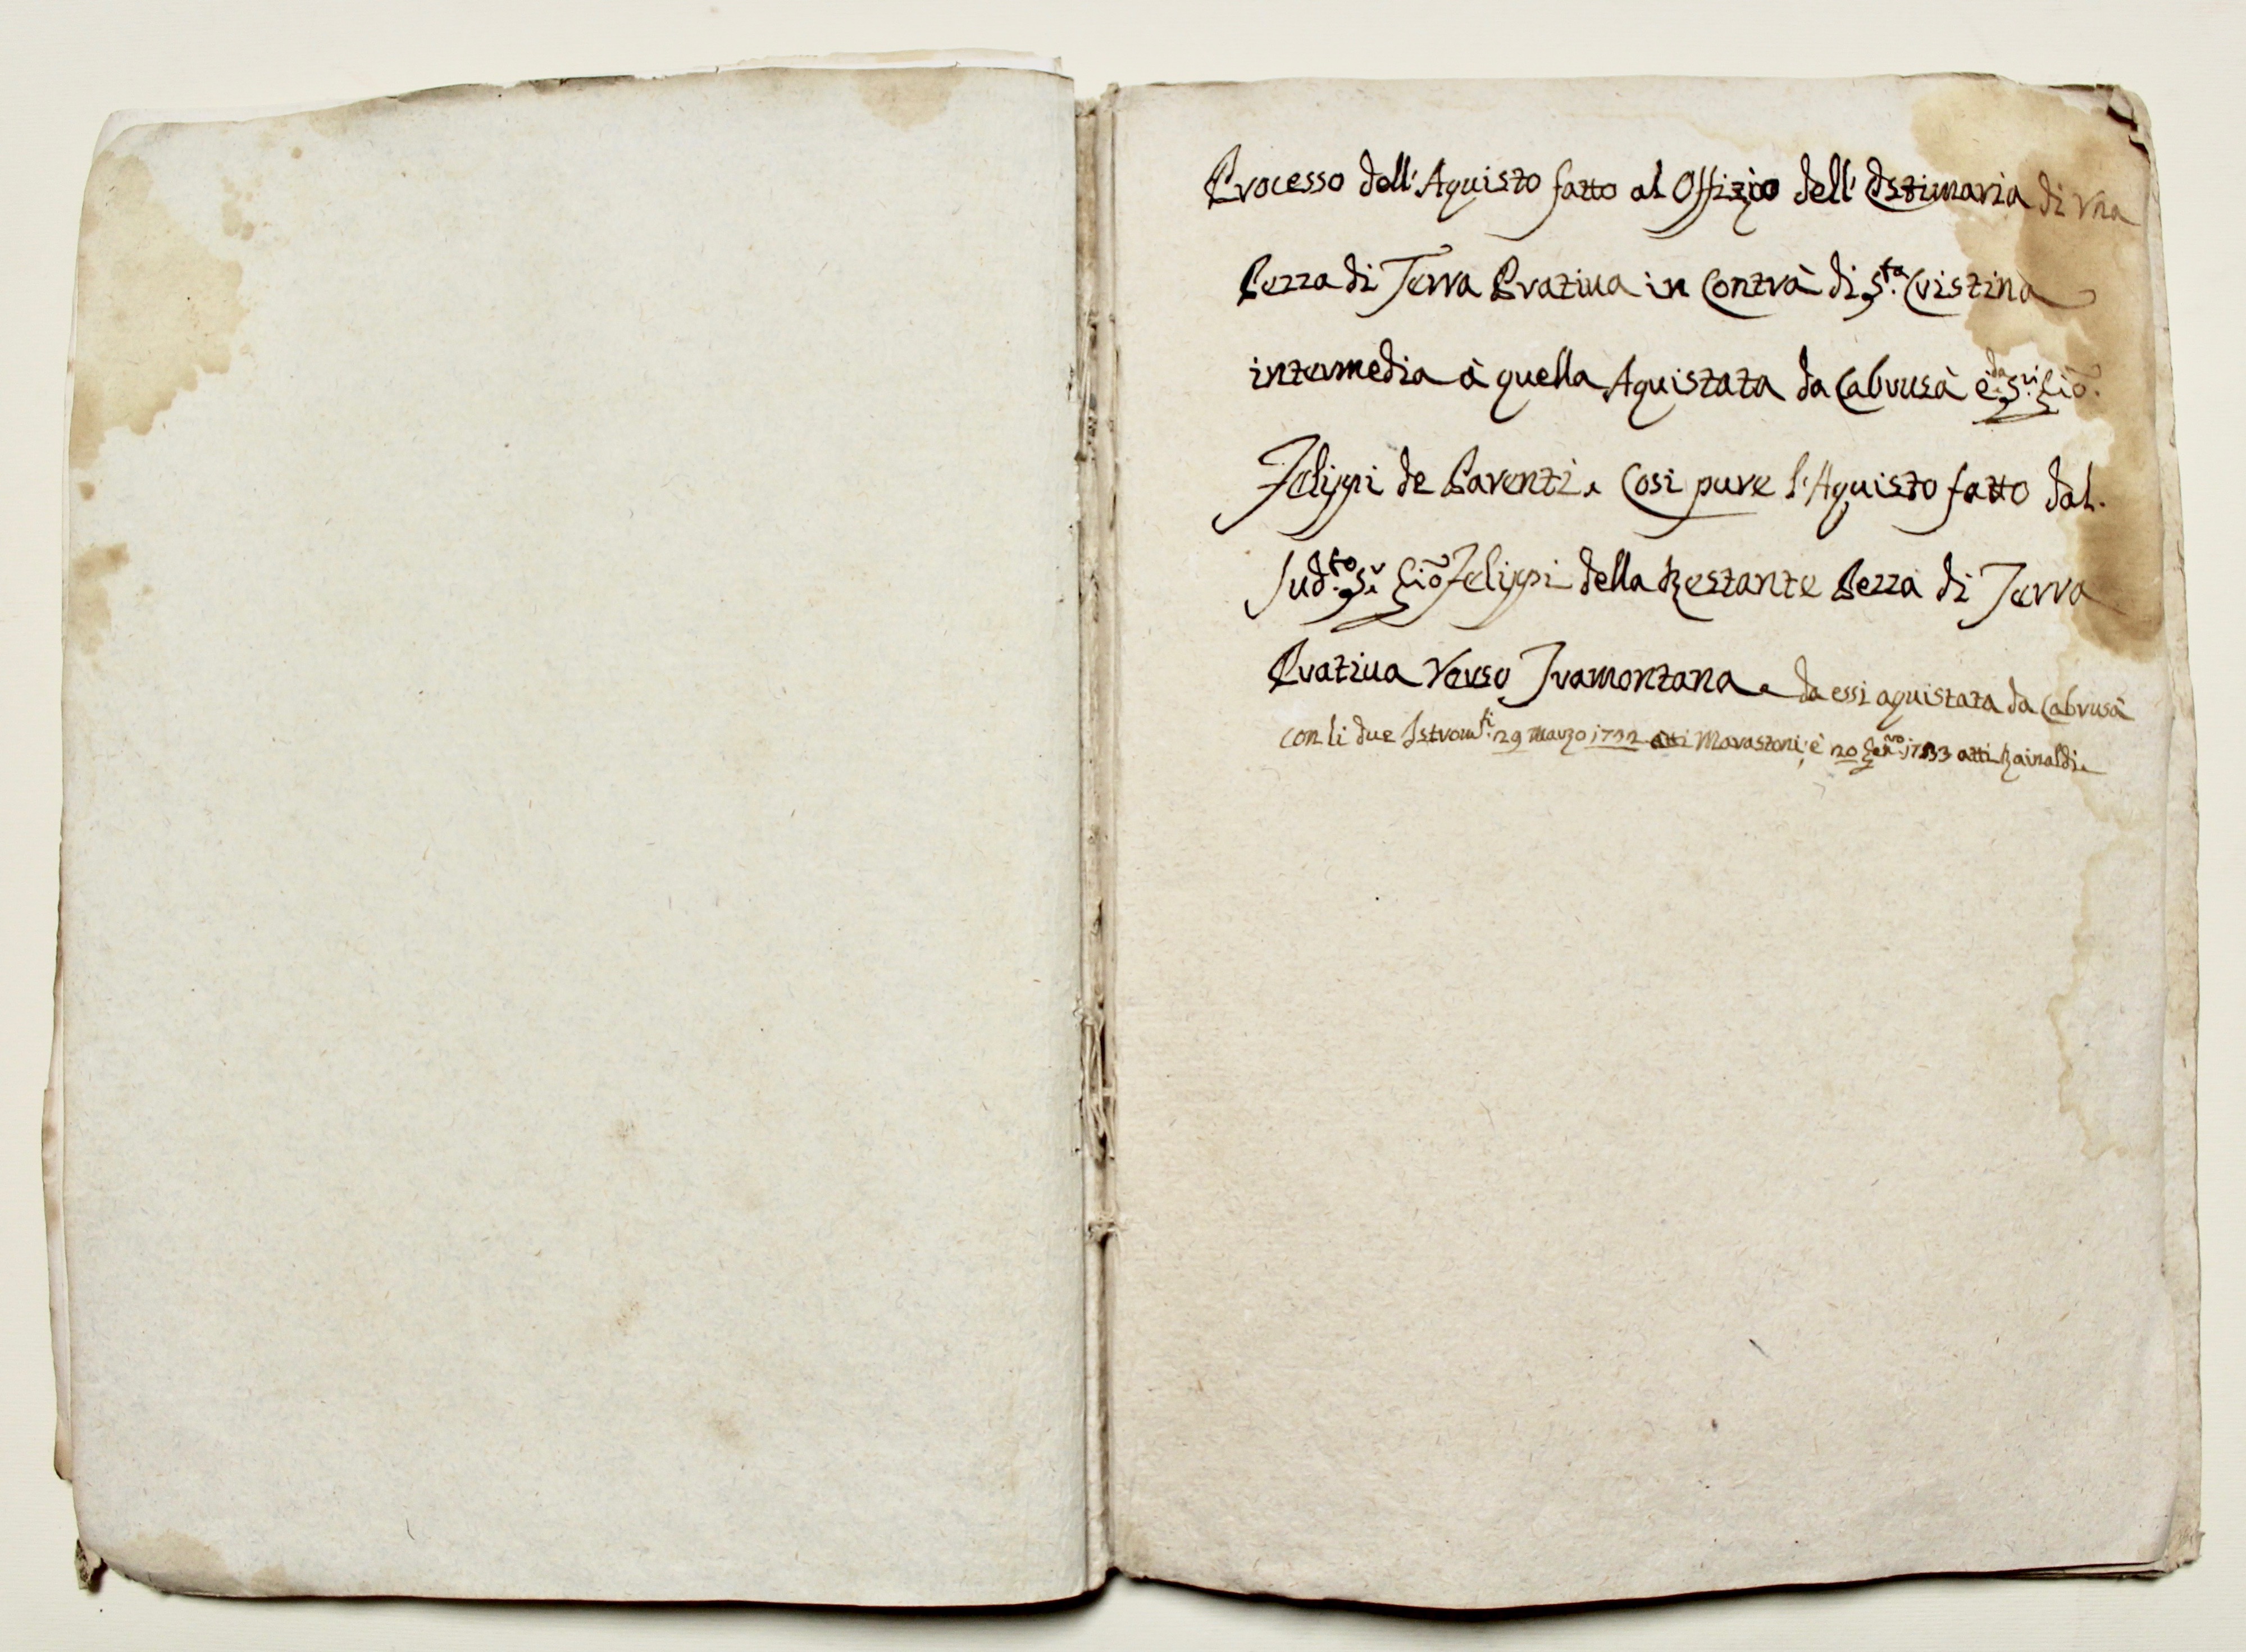 Processo dell' Aquisto fatto al Offizio dell' Estimaria di Vna
Pezza di Terra Pratiua in Contrà di S.ta Cristina
intermedia à quella Aquistata da Cabrusà è da S.ri Gio.
Felippi de Parenti. Cosi pure l'Aquisto fatto dal.
Sud.to S.r Gio Felippi della Restante Pezza di Terra
Pratiua Verso Tramontana. da essi aquistata da Cabrusà
con li due Istrom.ti 29 Marzo 1732 atti Marastoni; è 20 Gen.ro 1733 atti Rainaldi.